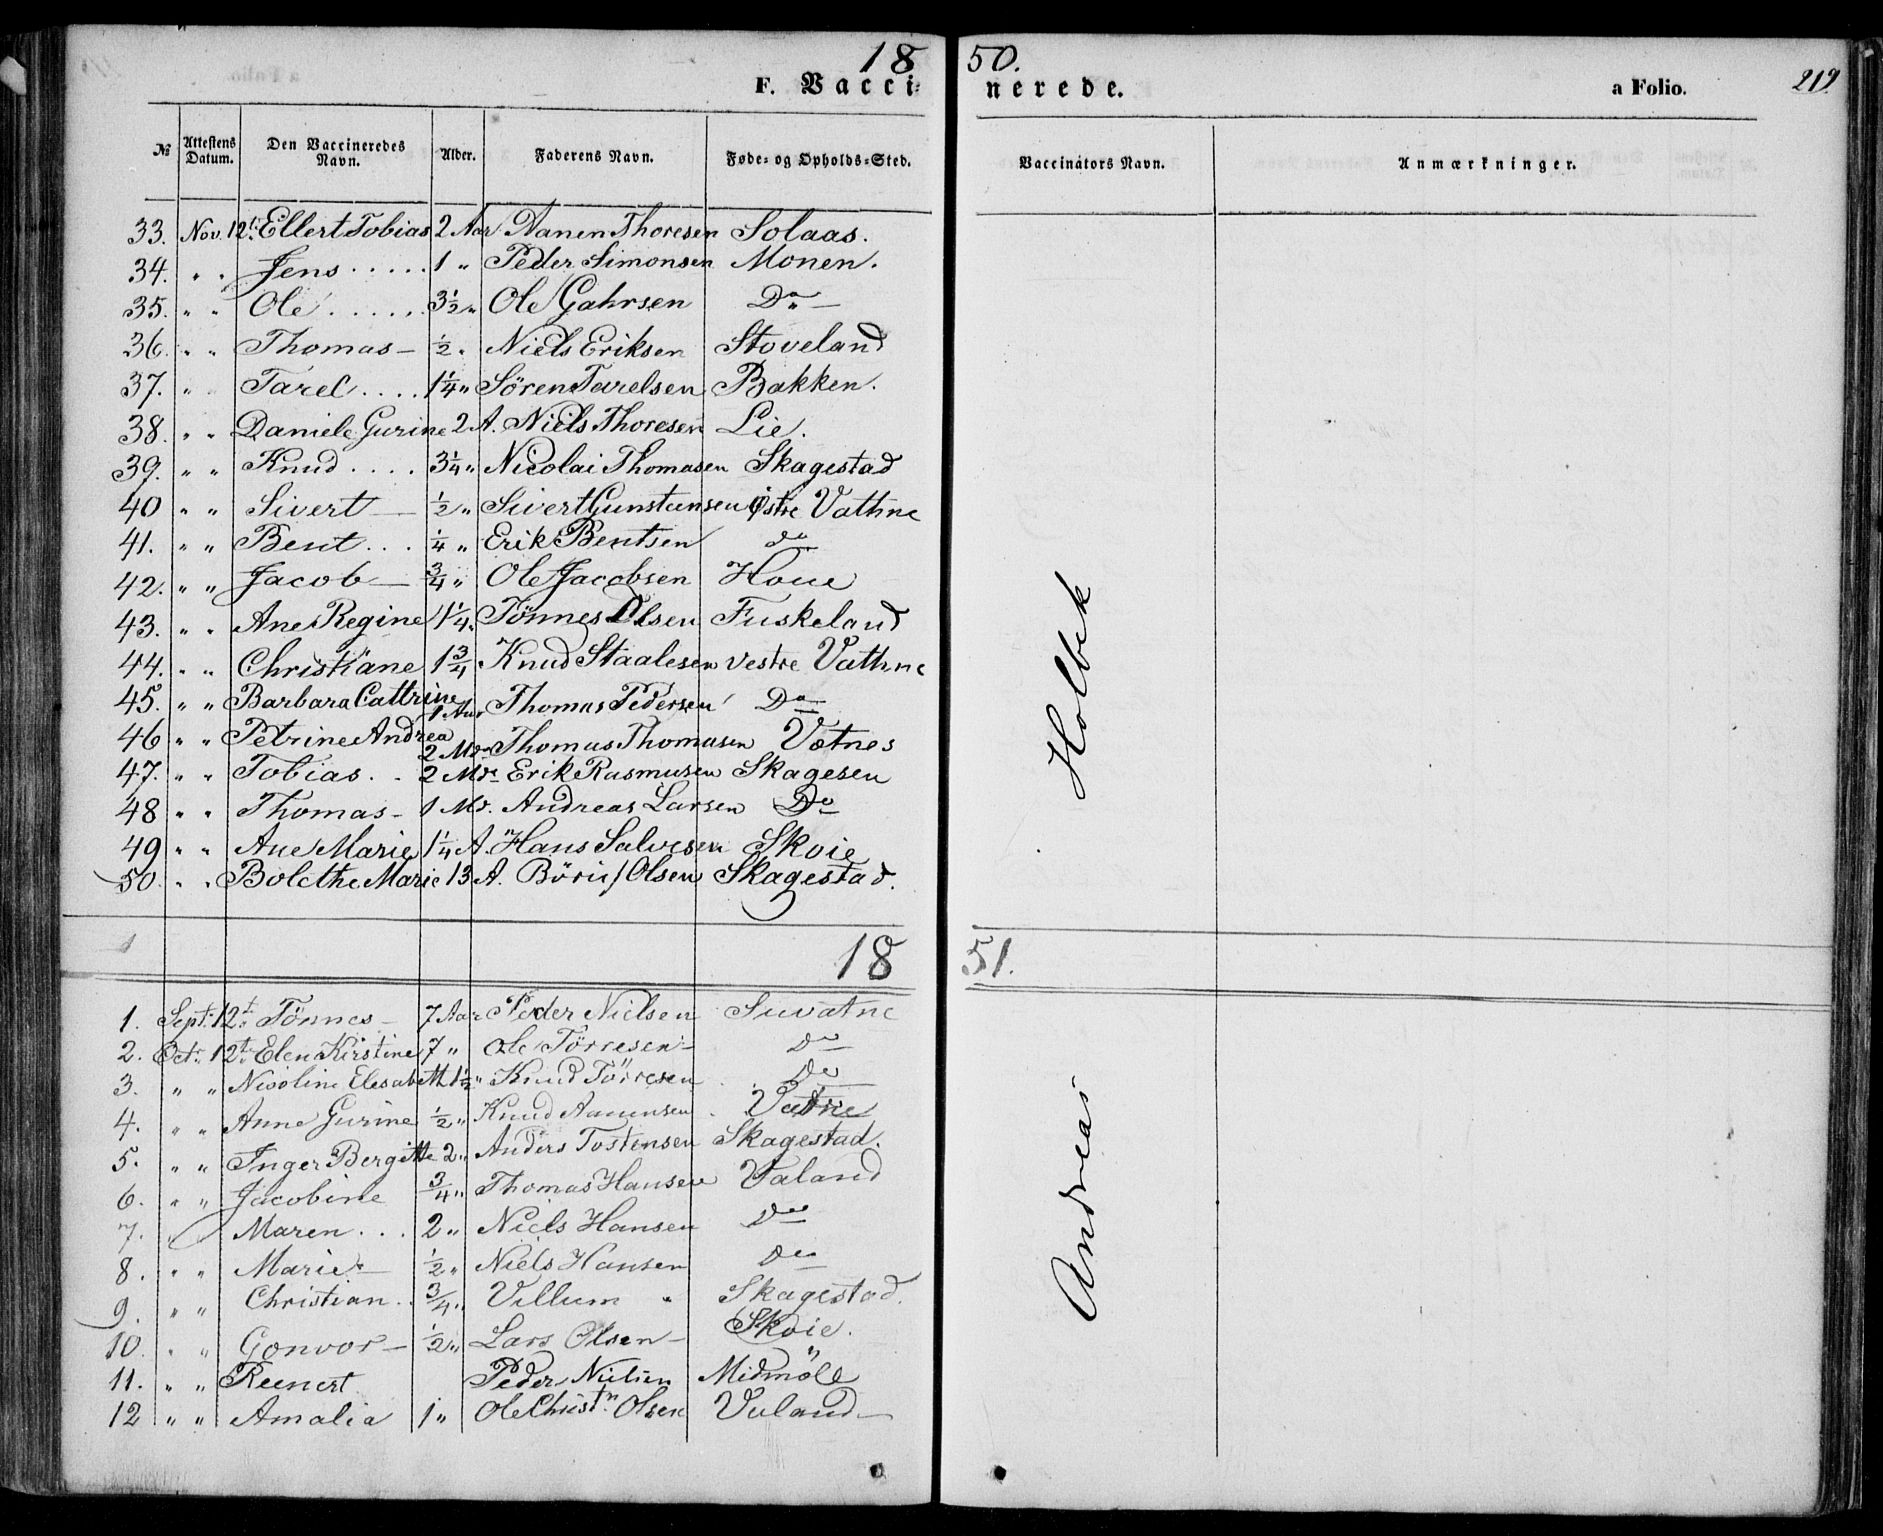 18 50.
F. Vacci- nerede. a Folio. 219.
No Attestens Datum. Den Vaccineredes Navn. Alder. Faderens Navn. Føde- og Opholds-Sted. Vaccinators Navn. Anmærkninger.
33. Nov. 12t Ellert Tobias 2 Aar Aanen Thoresen Solaas.
34. " " Jens ..... 1 " Peder Simonsen Monen.
35. " " Ole ...... 3½ " Ole Gahrsen Do —
36. " " Thomas — ½ " Niels Eriksen Stoveland
37. " " Tarel .... 1¼ " Sören Tarelsen Bakken.
38. " " Daniele Gurine 2 A. Niels Thoresen Lie.
39. " " Knud .... 3¼ " Nicolai Thomasen Skagestad
40 " " Sivert — ½ " Sivert Gunstensen Östre Vathne
41. " " Bent ... ¼ " Erik Bentsen do
42. " " Jacob — ¾ " Ole Jacobsen Houe
43. " " Ane Regine 1¼ " Tönnes Olsen Fuskeland
44. " " Christiane 1¾ " Knud Staalesen vestre Vathne
45. " " Barbara Cattrine 1 Aar Thomas Pedersen Do
46 " " Petrine Andrea 2 Mdr Thomas Thomasen Vatnes
47. " " Tobias . . 2 Mdr Erik Rasmusen Skagesen
48 " " Thomas - 1 Md. Andreas Larsen Do
49 " " Ane Marie 1¼ A. Hans Salvesen Skoie
50. " " Bolethe Marie 13 A. Börii Olsen Skagestad.
18 51.
1. Sept. 12t Tönnes — 7 Aar Peder Nielsen Suvatne
2. Oct. 12t Elen Kirstine 7 " Ole Törresen - Do
3. " " Nicoline Elesabeth 1½ " Knud Törresen Do
4. " " Anne Gurine ½ " Knud Aanensen Vatne
5. " " Inger Bergitte 2 " Anders Tostensen Skagestad.
6. " " Jacobine ¾ " Thomas Hansen Valand
7. " Maren ... 2 " Niels Hansen Do
8. " " Marie - ½ " Niels Hansen Do
9. " " Christian . ¾ " Villum " Skagestad.
10. " " Gonvor — ½ " Lars Olsen - Skoie.
11. " " Reenert Peder Nielsen Midmöll
12 " " Amalia 1 " Ole Christn. Olsen Valand —
Andreas Holbek